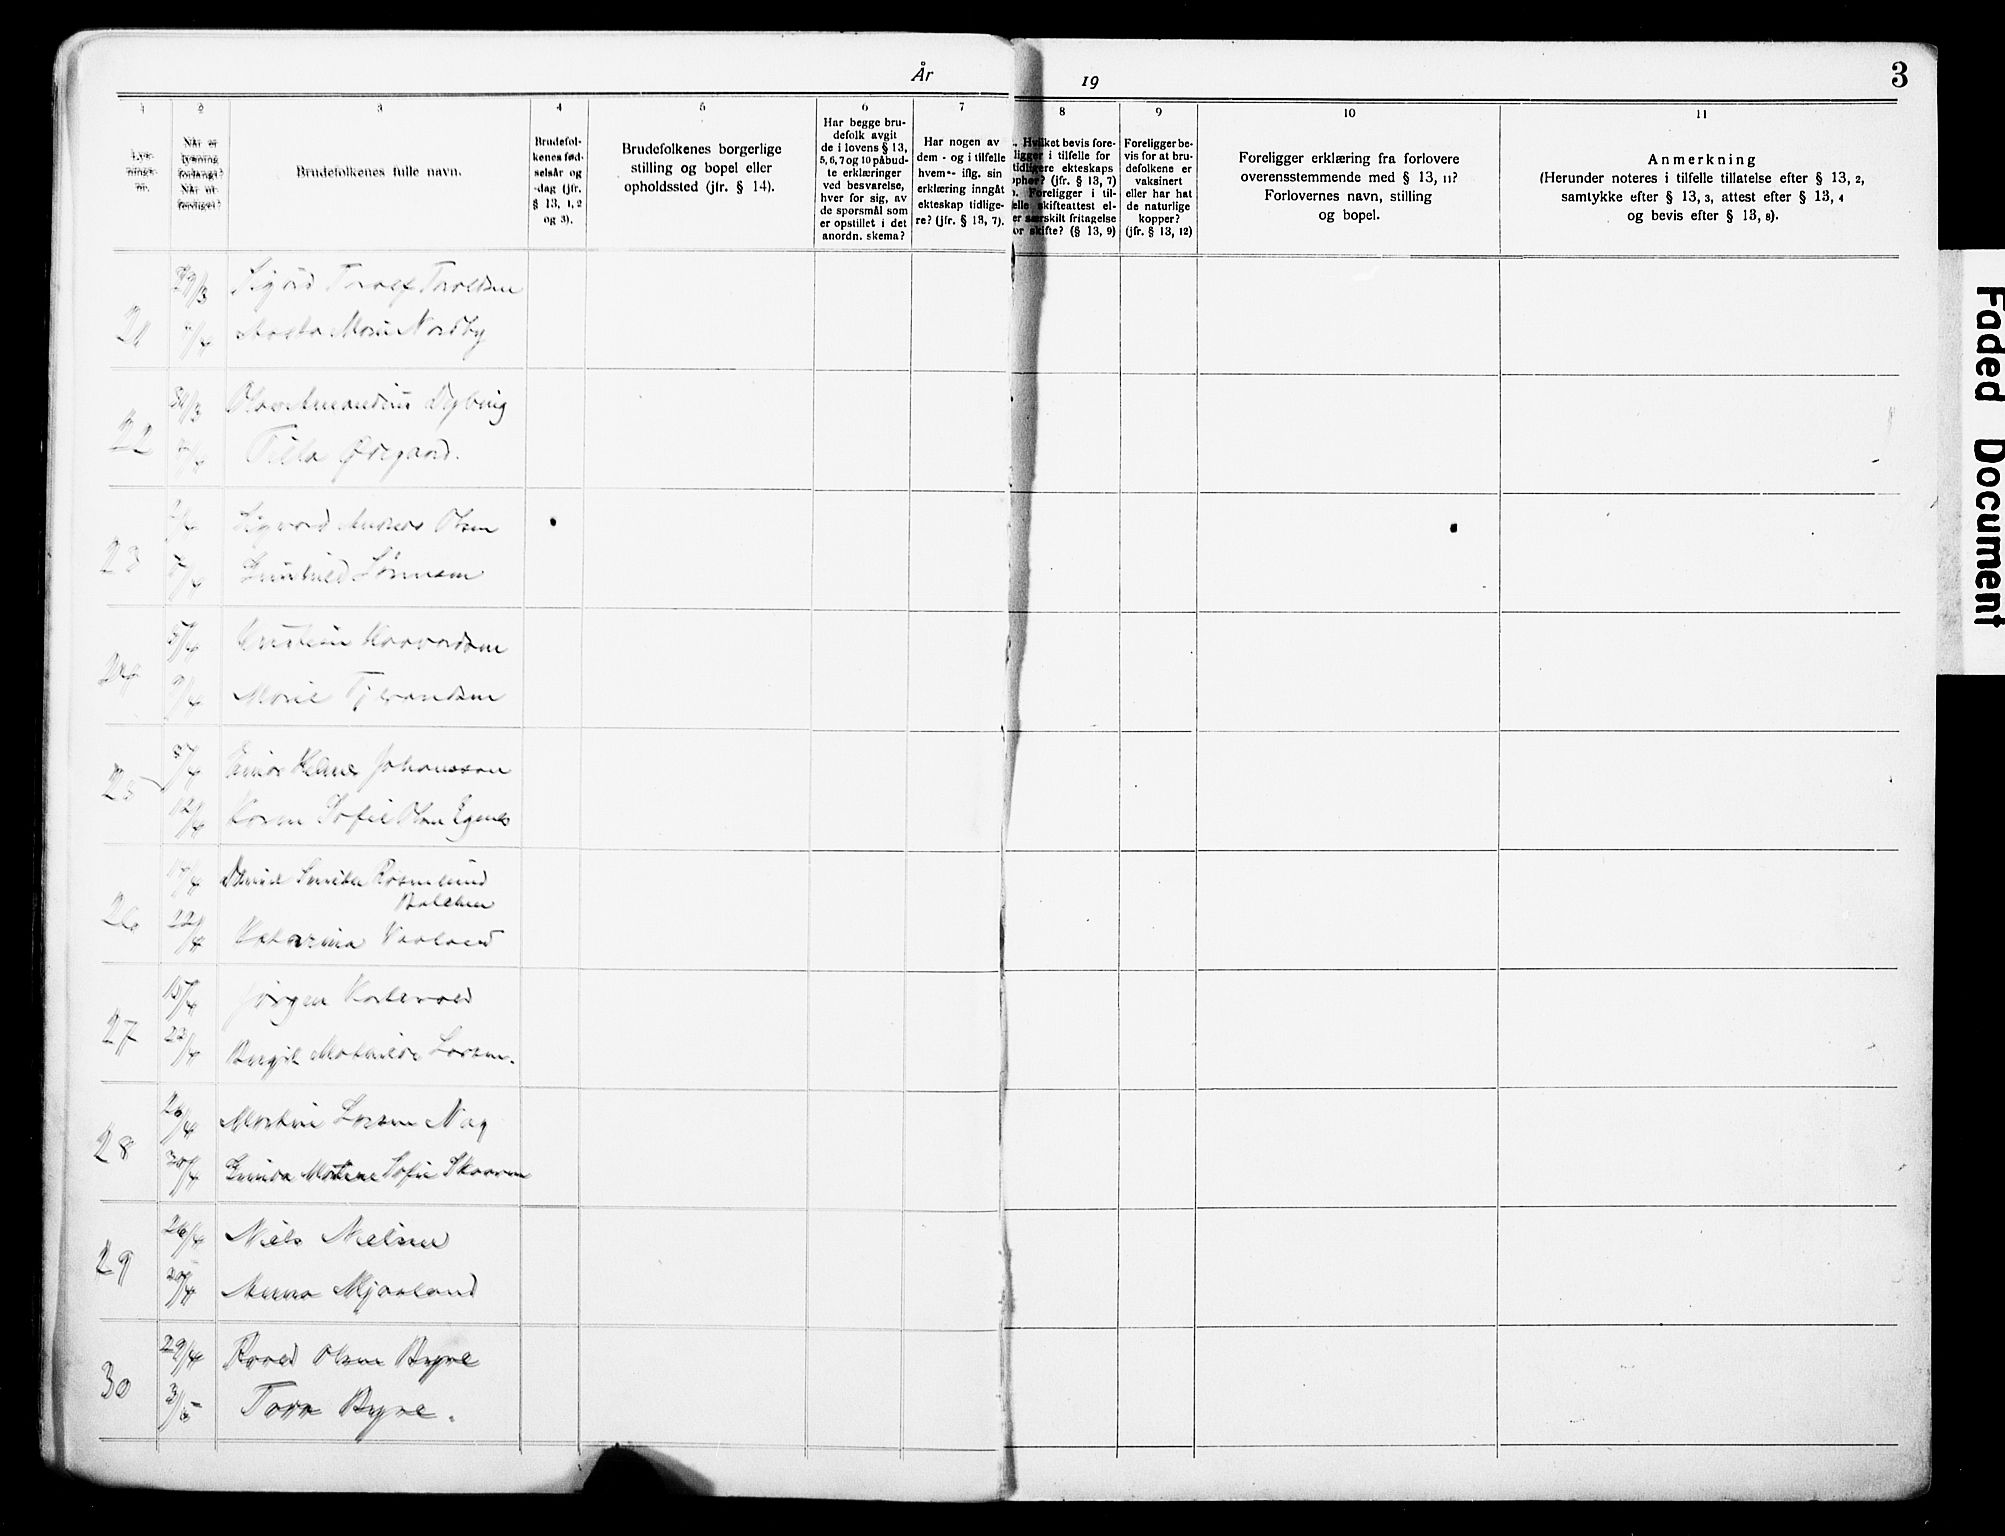 År 19
3
1
2
3
4
5
6
7
8
9
10
11
Lys-
nings-
nr.
Når er
lysning
forlangt?
Når ut-
ferdiget?
Brudefolkenes fulle navn.
Brudefol-
kenes fød-
selsår og
-dag (jfr.
§ 13, 1, 2
og 3).
Brudefolkenes borgerlige
stilling og bopel eller
opholdssted (jfr. § 14).
Har begge bru-
defolk avgit
de i lovens § 13,
5, 6, 7 og 10 påbud-
te erklæringer
ved besvarelse,
hver for sig, av
de spørsmål som
er opstillet i det
anordn. skema?
Har nogen av
dem - og i tilfelle
hvem - iflg. sin
erklæring inngått
ekteskap tidlige-
re? (jfr. § 13, 7).
Hvilket bevis fore-
ligger i tilfelle for
tidligere ekteskaps
ophør? (jfr. § 13, 7)
Foreligger i til-
felle skifteattest el-
er særskilt fritagelse
for skifte? (§ 13, 9)
Foreligger be-
vis for at bru-
defolkene er
vaksinert
eller har hat
de naturlige
kopper?
(jfr. § 13, 12)
Foreligger erklæring fra forlovere
overensstemmende med § 13, 11?
Forlovernes navn, stilling
og bopel.
Anmerkning
(Herunder noteres i tilfelle tillatelse efter § 13, 2,
samtykke efter § 13, 3, attest efter § 13, 4
og bevis efter § 13, 8).
21 29/3 Sigurd Toralf Taraldsen
/4 Marie Nordby
22 30/3 Olav Amandus Dybing
/4 Tilla Ødegaard.
23 Sigvard Andreas Olsen
/4 Gunhild Sørensen
24 5/4 Kristian Haavardsen
9/4 Marie Tjerandsen
25 8/4 Einar Helmer Johansson
12/4 Karen Sofie Olsen Egenes
26 17/4
22/4 Katarina Vaaland
27 15/4 Jørgen Kartevold
23/4 Birgit Mathilde Larsen.
28 26/4 Martin Larsen Nag
30/4 Gunda Martine Sofie Skaaren
29 26/4 Niels Nielsen
30/4 Anna Mjaaland
30 29/4 Roald Olsen Bryne
3/5 Tora Bryne.
Faded Document